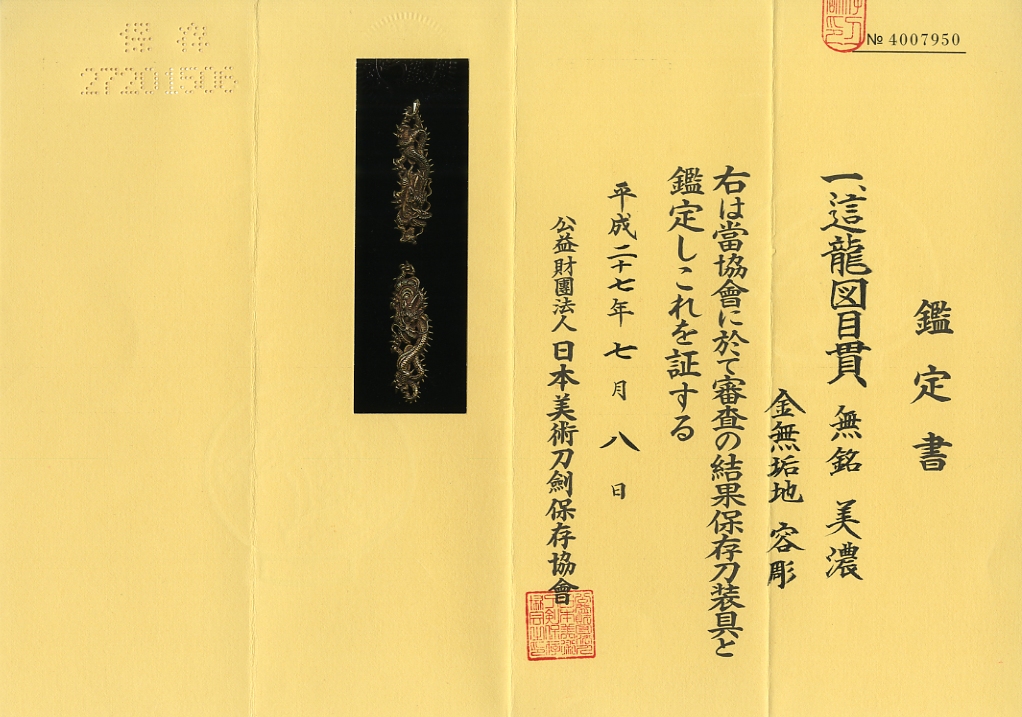 № 4007950
鑑定書
一、這龍図目貫 無銘 美濃
金無垢地 容彫
右は當協會に於て審査の結果保存刀装具と
鑑定しこれを証する
平成二十七年七月八日
公益財團法人日本美術刀劍保存協會
保存
27201506